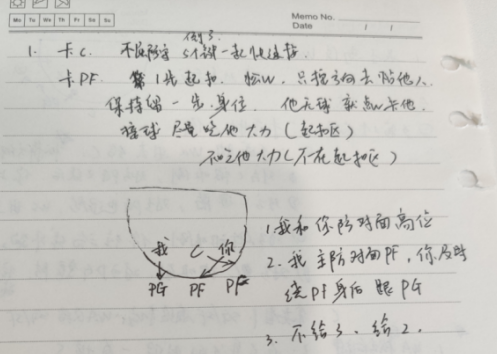 Memo No.
Date / /
Mo Tu We Th Fr Sa Su
例3.
1. 卡C. 不 5个键一起快速按
卡PF. 第1先起扣. 松W. 只按方向去贴他人.
保持留一步.身位. 他无球就点W卡他.
接球 尽量吃他大力(起扣区)
不吃他大力(不在起扣区)
我 C 你
PG PF PF
1.我和你防对面高位
2.我主防对面PF,你及时
绕PF身后跟PG
3.不给3.给2.